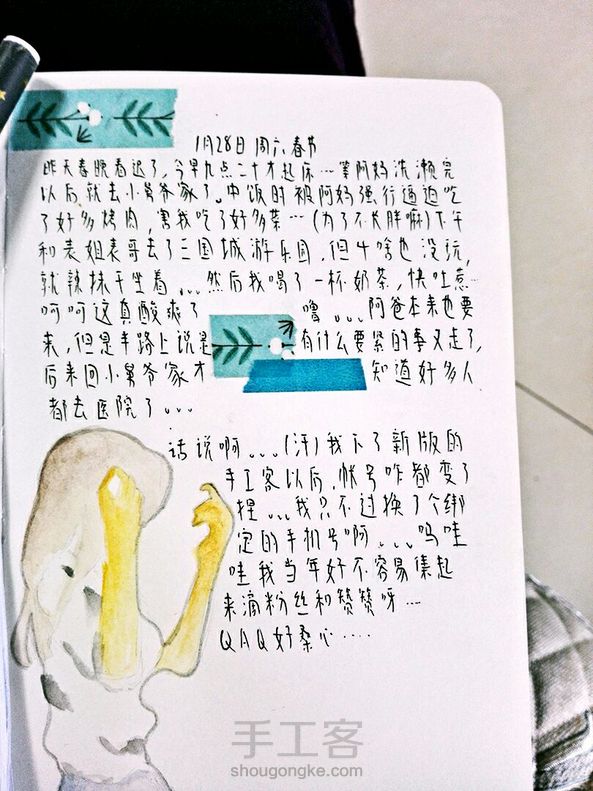 1月28日 周六 春节
昨天春晚看迟了,今早九点二十才起床…等阿妈洗漱完
以后就去小舅爷家了。中饭时被阿妈强行逼迫吃
了好多烤肉,害我吃了好多菜…(为了不长胖嘛)下午
和表姐表哥去了三国城游乐园,但啥也没玩,
就辣抹干坐着。。。然后我喝了一杯奶茶,快吐惹…
呵呵这真酸爽了 噜。。。阿爸本来也要
来,但是半路上说是有什么要紧的事又走了,
后来回小舅爷家才 知道好多人
都去医院了。。。
话说啊。。。(汗)我下了新版的
手工客以后,帐号咋都变了
捏。。。我只不过换了个绑
定的手机号啊。。。呜哇
哇我当年好不容易集起
来滴粉丝和赞赞呀…
QAQ好桑心….
手工客
shougongke.com